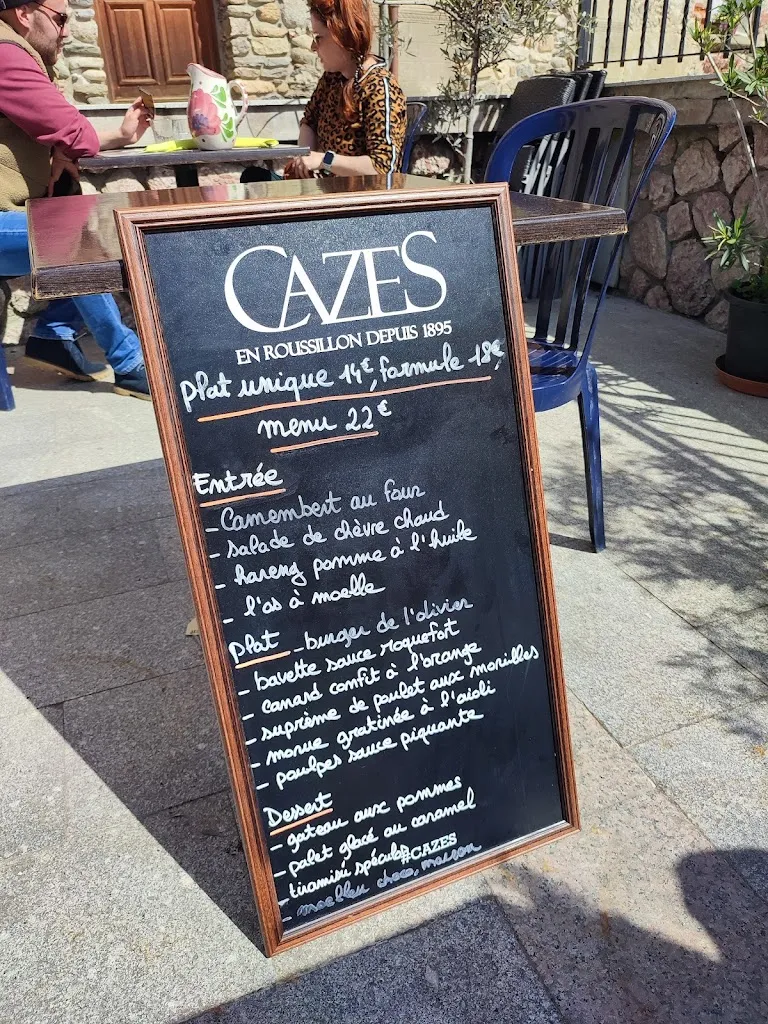 CAZES
EN ROUSSILLON DEPUIS 1895
Plat unique 14€, formule 18€,
menu 22€
Entrée
- Camembert au four
- salade de chèvre chaud
- hareng pomme à l'huile
- l'os à moelle
Plat - burger de l'olivier
- bavette sauce roquefort
- canard confit à l'orange
- suprème de poulet aux morilles
- morue gratinée à l'aioli
- poulpes sauce piquante
Dessert
- gateau aux pommes
- palet glacé au caramel
- tiramisu spéculos
#CAZES
- moelleu choco, maison